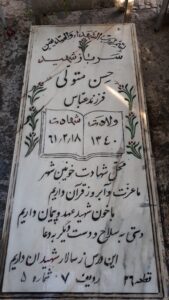 سرباز شهید
حسن متولی
فرزند عباس
ولادت شهادت
۱۳۴۰ ۶۱/۲/۱۸
شهادت خونین شهر
ما عزت و آبرو ز قرآن داریم
با خون شهید عهد و پیمان داریم
دستی به سلاح و دست دیگر به دعا
این درس ز سالار شهیدان داریم
قطعه ۲۶ ردیف ۷ شماره ۵